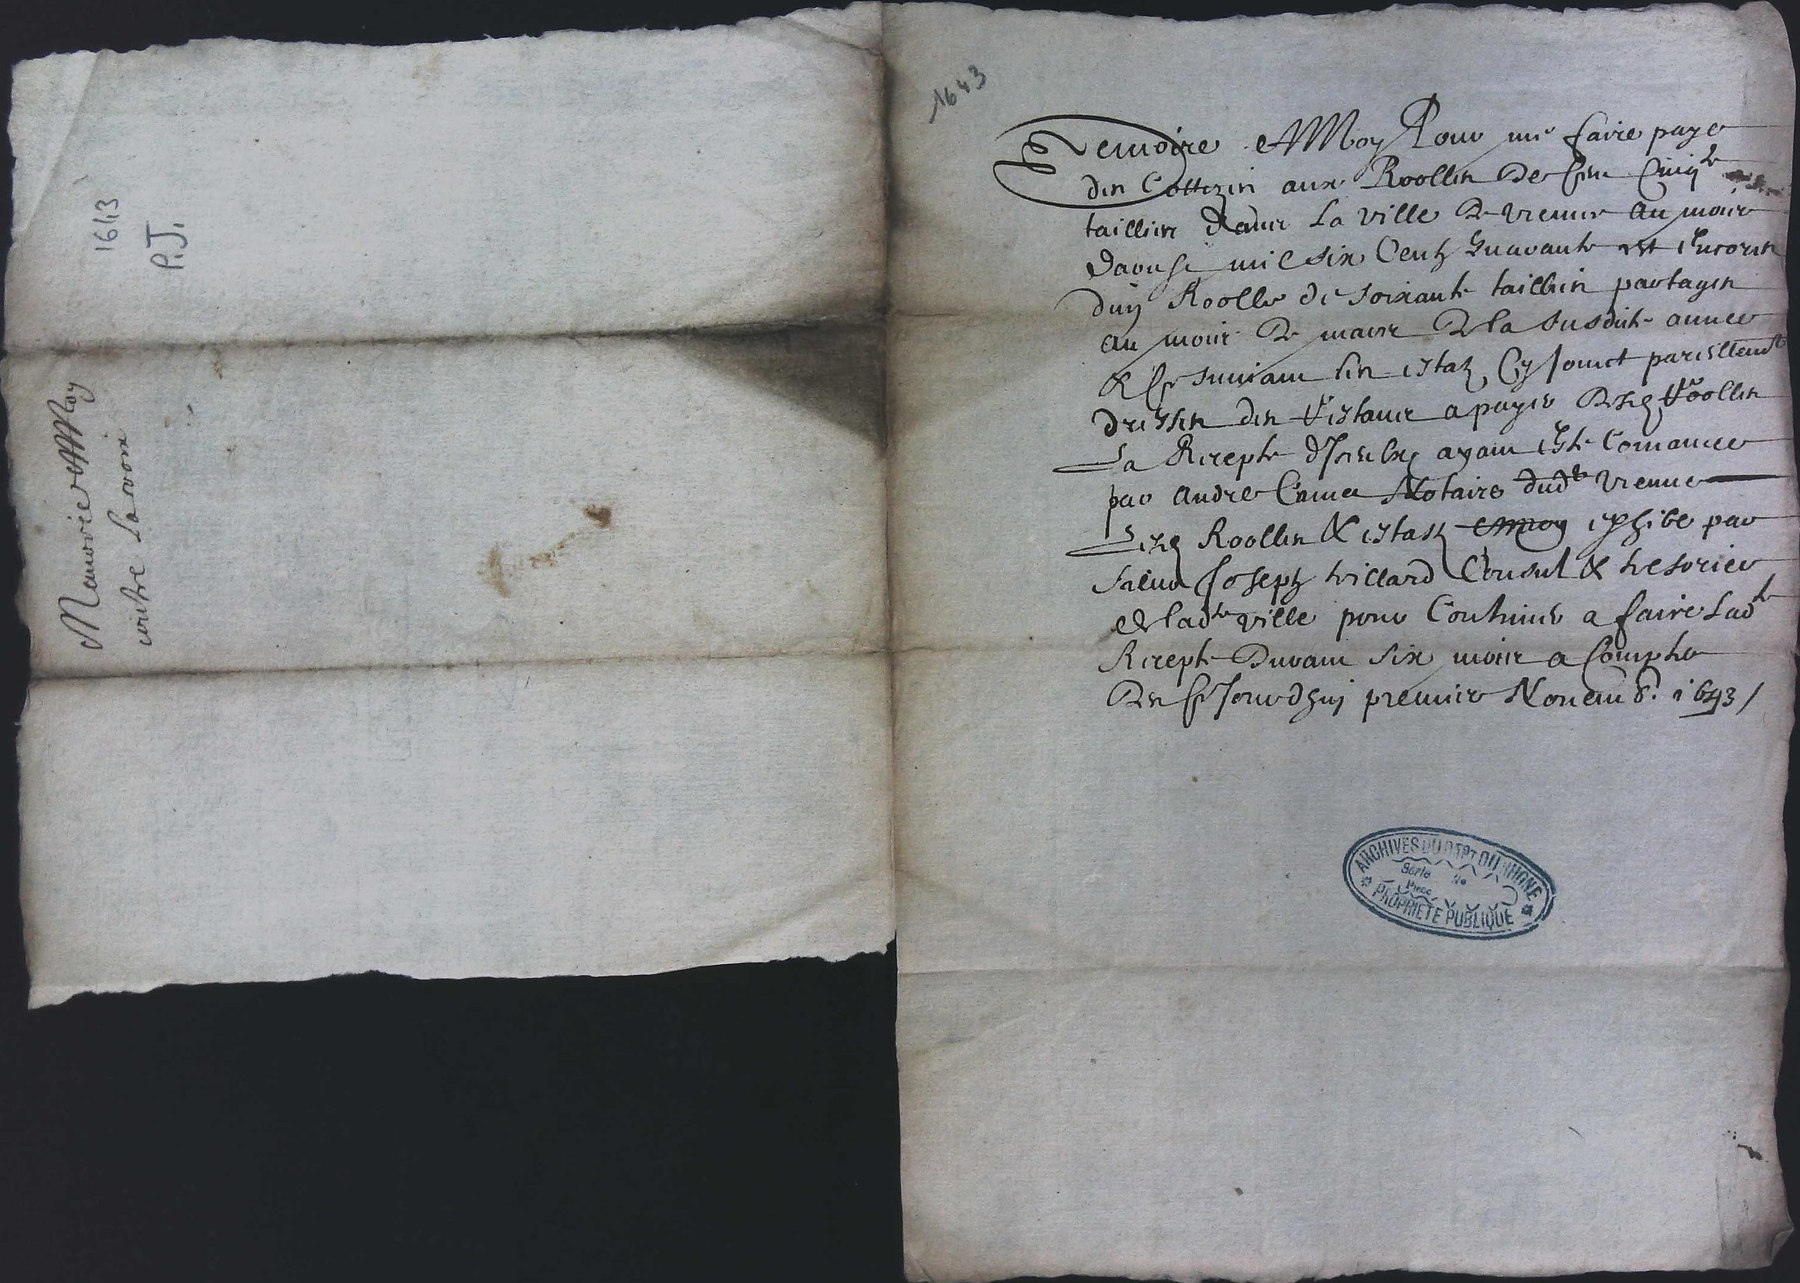 1613
P.J.
Memoire A Moy
contre Lavoroi
1643
Memoire A Moy Pour me faire payer
des Cottizes aux Roolles De
tailles dans La ville De vienne au mois
daoust mil six Centz quarante et Encores
dun Roolle de soixante tailles partages
au mois De mars De la susdite annee
& suivant les estatz Cy Joinct pareillement
dresses des Restans a payer Desd Roolles
La Recepte d'Iceulx ayant Esté Comancee
par Andre Notaire dudt Vienne
Lesd Roolles & estatz exhibe par
Joseph villard Consul & tresorier
de ladte ville pour Continuer a faire Ladte
Recepte Durant six mois a Compter
De ce Jourdhuy premier Novemb. 1643 /
ARCHIVES DU DEPT DU RHONE
Série No
Pièce
PROPRIETE PUBLIQUE